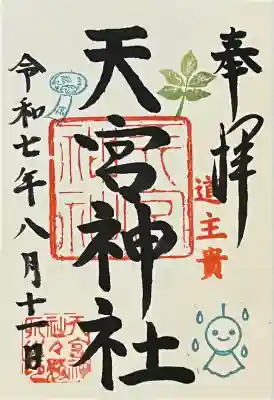 奉拝
道主貴
天宮神社
令和七年八月十一日